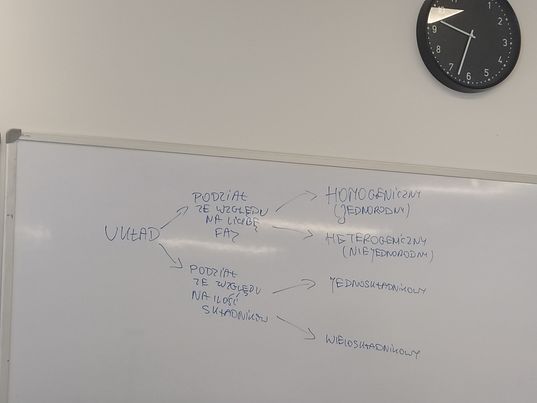 11
1
10
2
9
3
8
4
7
5
6
UKŁAD
PODZIAŁ
ZE WZGLĘDU
NA LICZBĘ
FAZ
HOMOGENICZNY
(JEDNORODNY)
HETEROGENICZNY
(NIEJEDNORODNY)
PODZIAŁ
ZE WZGLĘDU
NA ILOŚĆ
SKŁADNIKÓW
JEDNOSKŁADNIKOWY
WIELOSKŁADNIKOWY